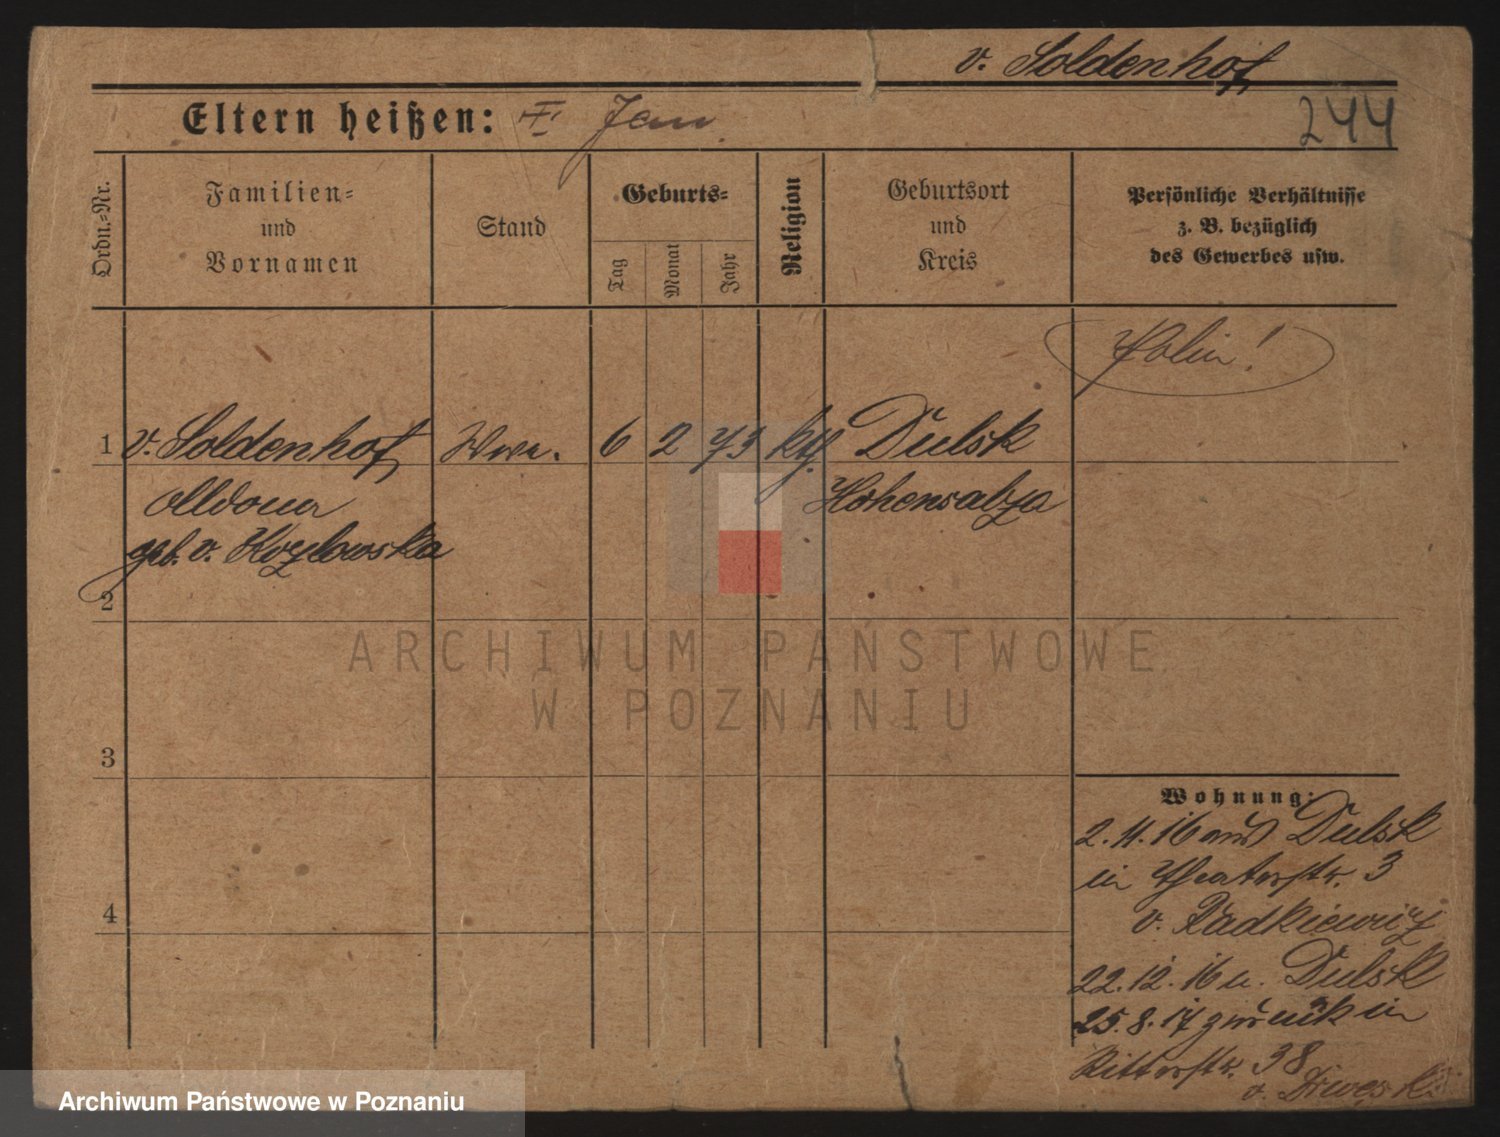 v. Soldenhof
Eltern heißen: Jan
244
Ordn.-Nr.
Familien-
und
Vornamen
Stand
Geburts-
Tag
Monat
Jahr
Religion
Geburtsort
und
Kreis
Persönliche Verhältnisse
z. B. bezüglich
des Gewerbes usw.
Polin!
1 v. Soldenhof Wwe. 6 2 73 kth. Dulsk
Aldona Hohensalza
geb. v. Kozlowska
2
ARCHIWUM PAŃSTWOWE
W POZNANIU
3
Wohnung:
2. 11. 16 aus Dulsk
in Theaterstr. 3
v. Radkiewicz
4
22. 12. 16 n. Dulsk
25. 8. 17 zurück in
Ritterstr. 38
v.
Archiwum Państwowe w Poznaniu